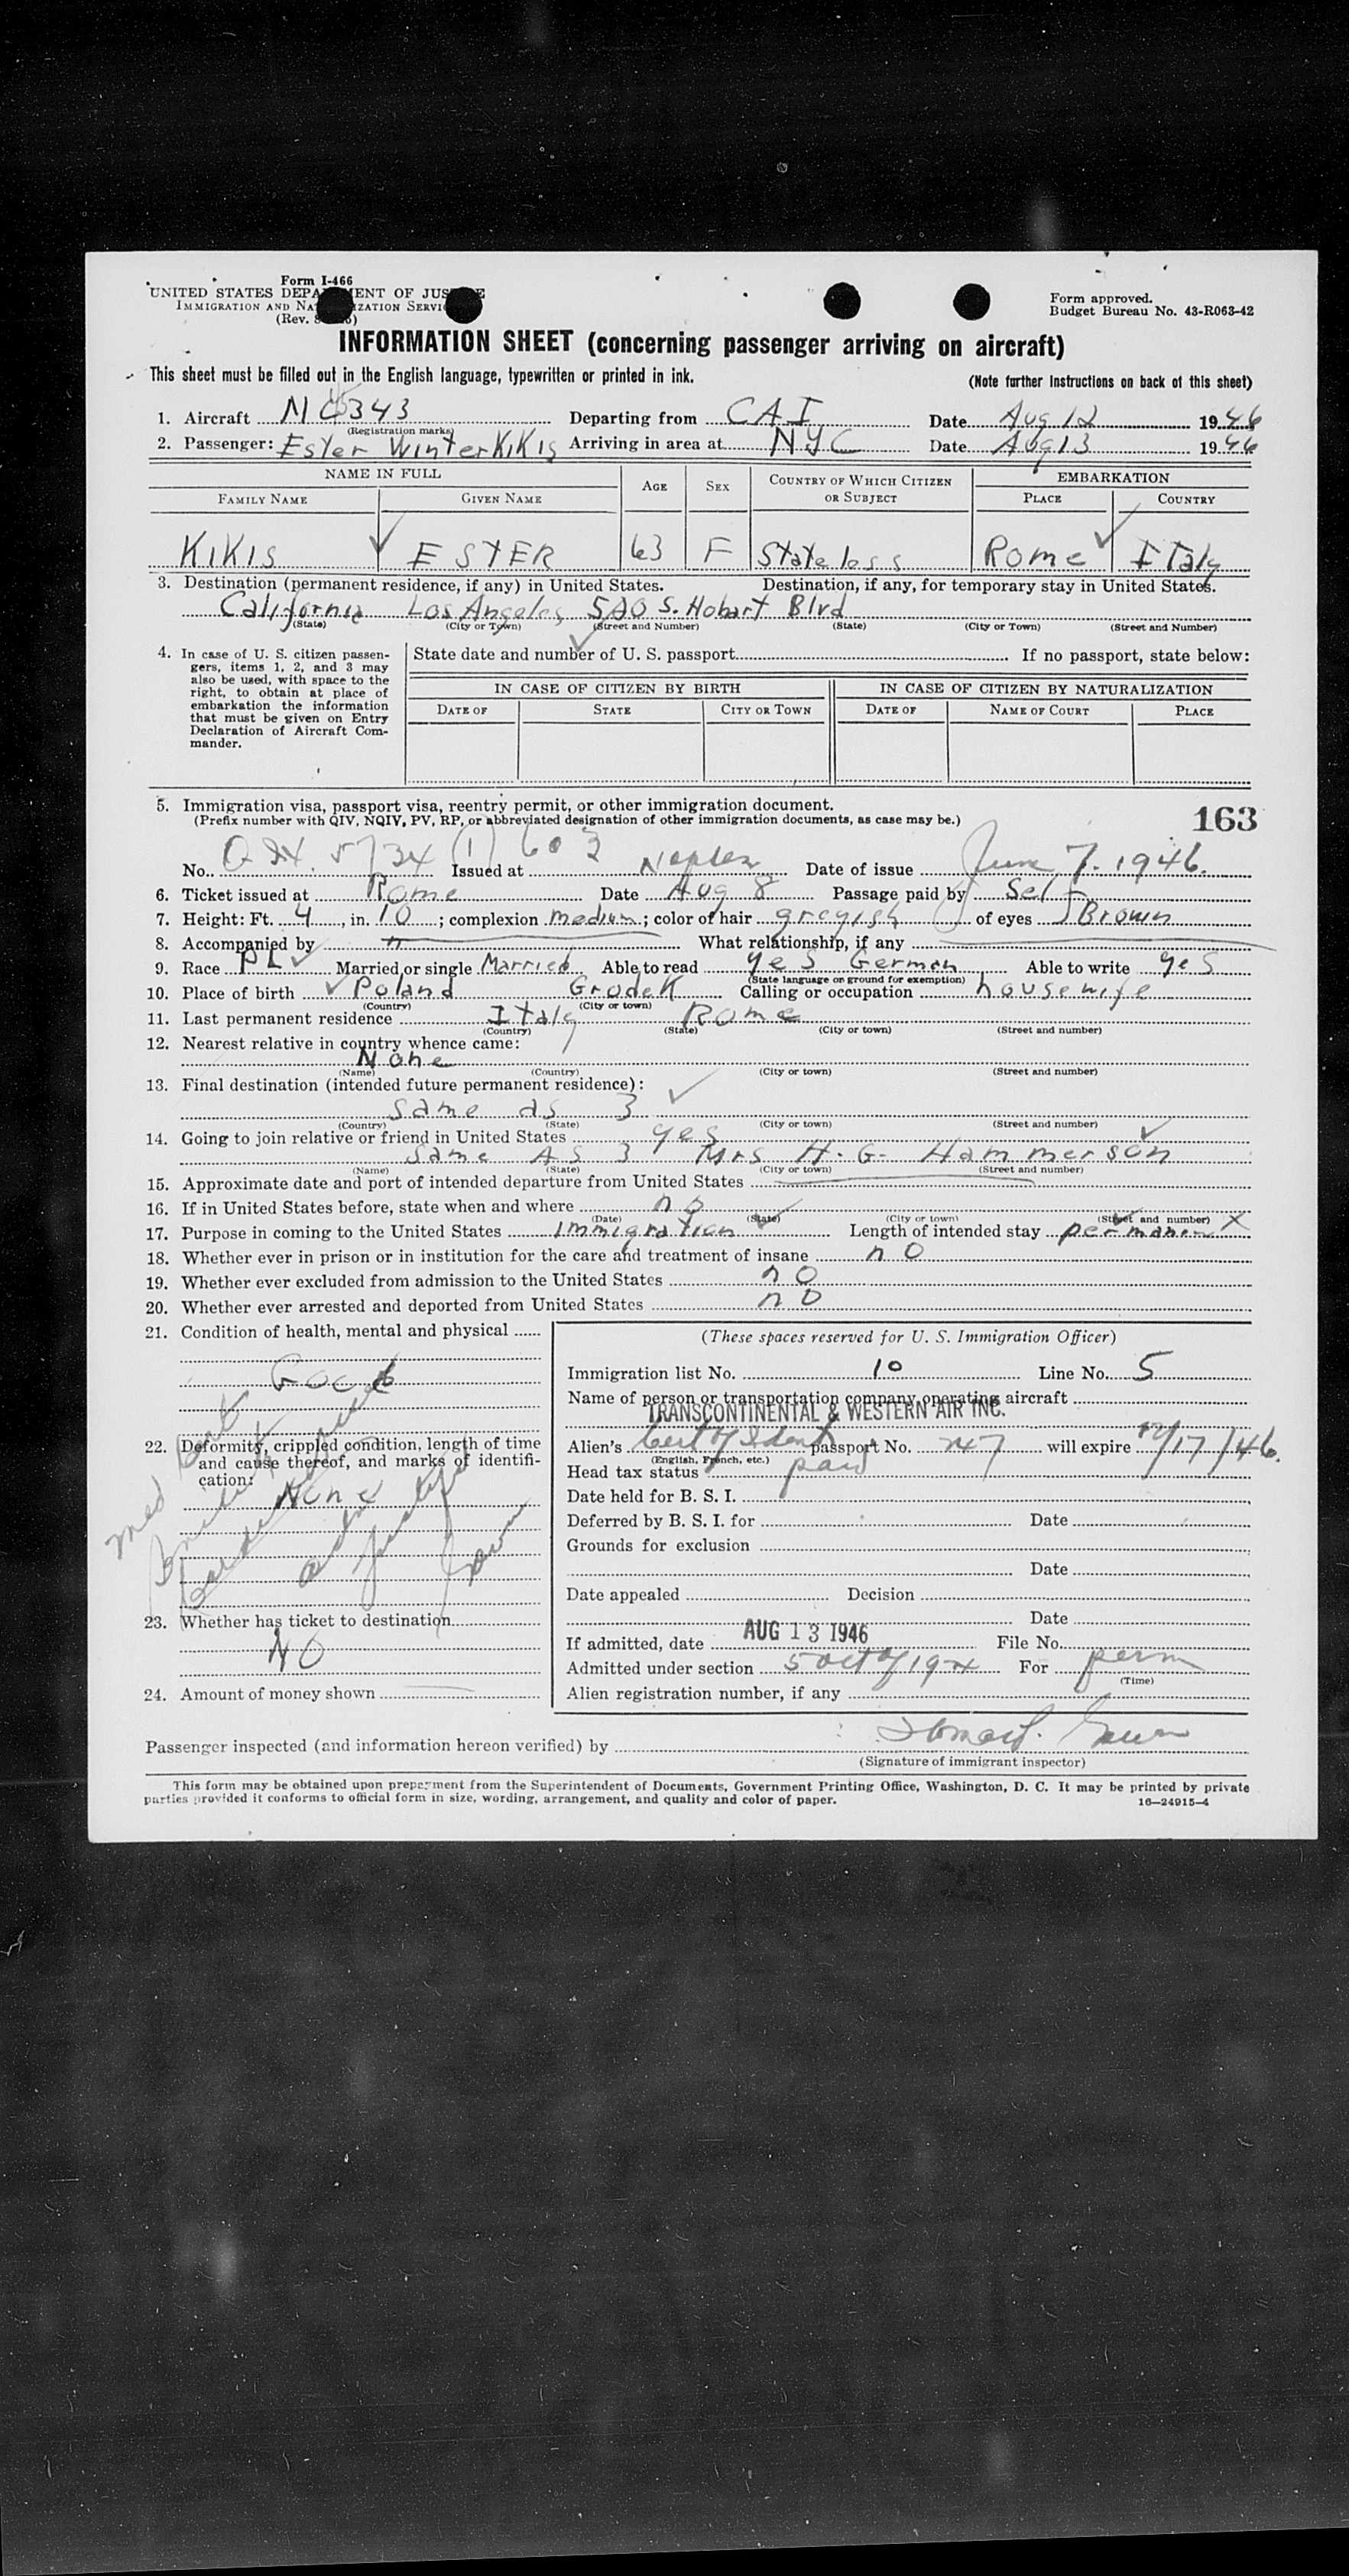 Form I-466
UNITED STATES DEPARTMENT OF JUSTICE
IMMIGRATION AND NATURALIZATION SERVICE
(Rev.
Form approved.
Budget Bureau No. 43-R063-42
INFORMATION SHEET (concerning passenger arriving on aircraft)
This sheet must be filled out in the English language, typewritten or printed in ink.
(Note further instructions on back of this sheet)
1. Aircraft Departing from CAI Date Aug 12 1946
(Registration marks)
2. Passenger: Ester Winter Kikis Arriving in area at NYC Date Aug 13 1946
NAME IN FULL AGE SEX COUNTRY OF WHICH CITIZEN OR SUBJECT EMBARKATION
FAMILY NAME GIVEN NAME PLACE COUNTRY
KIKIS ESTER 63 F Stateless Rome Italy
3. Destination (permanent residence, if any) in United States. Destination, if any, for temporary stay in United States.
California Los Angeles 520 S. Hobart Blvd
(State) (City or Town) (Street and Number) (State) (City or Town) (Street and Number)
4. In case of U. S. citizen passengers, items 1, 2, and 3 may also be used, with space to the right, to obtain at place of embarkation the information that must be given on Entry Declaration of Aircraft Commander.
State date and number of U. S. passport If no passport, state below:
IN CASE OF CITIZEN BY BIRTH IN CASE OF CITIZEN BY NATURALIZATION
DATE OF STATE CITY OR TOWN DATE OF NAME OF COURT PLACE
5. Immigration visa, passport visa, reentry permit, or other immigration document.
(Prefix number with QIV, NQIV, PV, RP, or abbreviated designation of other immigration documents, as case may be.)
163
No. Issued at Naples Date of issue June 7. 1946.
6. Ticket issued at Rome Date Aug 8 Passage paid by Self
7. Height: Ft. 4, in. 10; complexion medium; color of hair greyish of eyes Brown
8. Accompanied by What relationship, if any
9. Race PL Married or single Married Able to read yes German Able to write yes
(State language on ground for exemption)
10. Place of birth Poland Grodek Calling or occupation housewife
(Country) (City or town)
11. Last permanent residence Italy Rome
(Country) (State) (City or town) (Street and number)
12. Nearest relative in country whence came:
None
(Name) (Country) (City or town) (Street and number)
13. Final destination (intended future permanent residence):
same as 3
(Country) (State) (City or town) (Street and number)
14. Going to join relative or friend in United States yes
same As 3 Mrs H. G. Hammerson
(Name) (State) (City or town) (Street and number)
15. Approximate date and port of intended departure from United States
16. If in United States before, state when and where no
(Date) (State) (City or town) (Street and number)
17. Purpose in coming to the United States Immigration Length of intended stay permanen
18. Whether ever in prison or in institution for the care and treatment of insane no
19. Whether ever excluded from admission to the United States no
20. Whether ever arrested and deported from United States no
21. Condition of health, mental and physical
Good
22. Deformity, crippled condition, length of time and cause thereof, and marks of identification:
None
23. Whether has ticket to destination
NO
24. Amount of money shown
(These spaces reserved for U. S. Immigration Officer)
Immigration list No. 10 Line No. 5
Name of person or transportation company operating aircraft
TRANSCONTINENTAL & WESTERN AIR INC.
Alien's Cert of Ident passport No. 747 will expire 12/17/46.
(English, French, etc.)
Head tax status paid
Date held for B. S. I.
Deferred by B. S. I. for Date
Grounds for exclusion
Date
Date appealed Decision
Date
If admitted, date AUG 13 1946 File No.
Admitted under section 5 For perm
(Time)
Alien registration number, if any
Passenger inspected (and information hereon verified) by
(Signature of immigrant inspector)
This form may be obtained upon prepayment from the Superintendent of Documents, Government Printing Office, Washington, D. C. It may be printed by private
parties provided it conforms to official form in size, wording, arrangement, and quality and color of paper.
16—24915-4